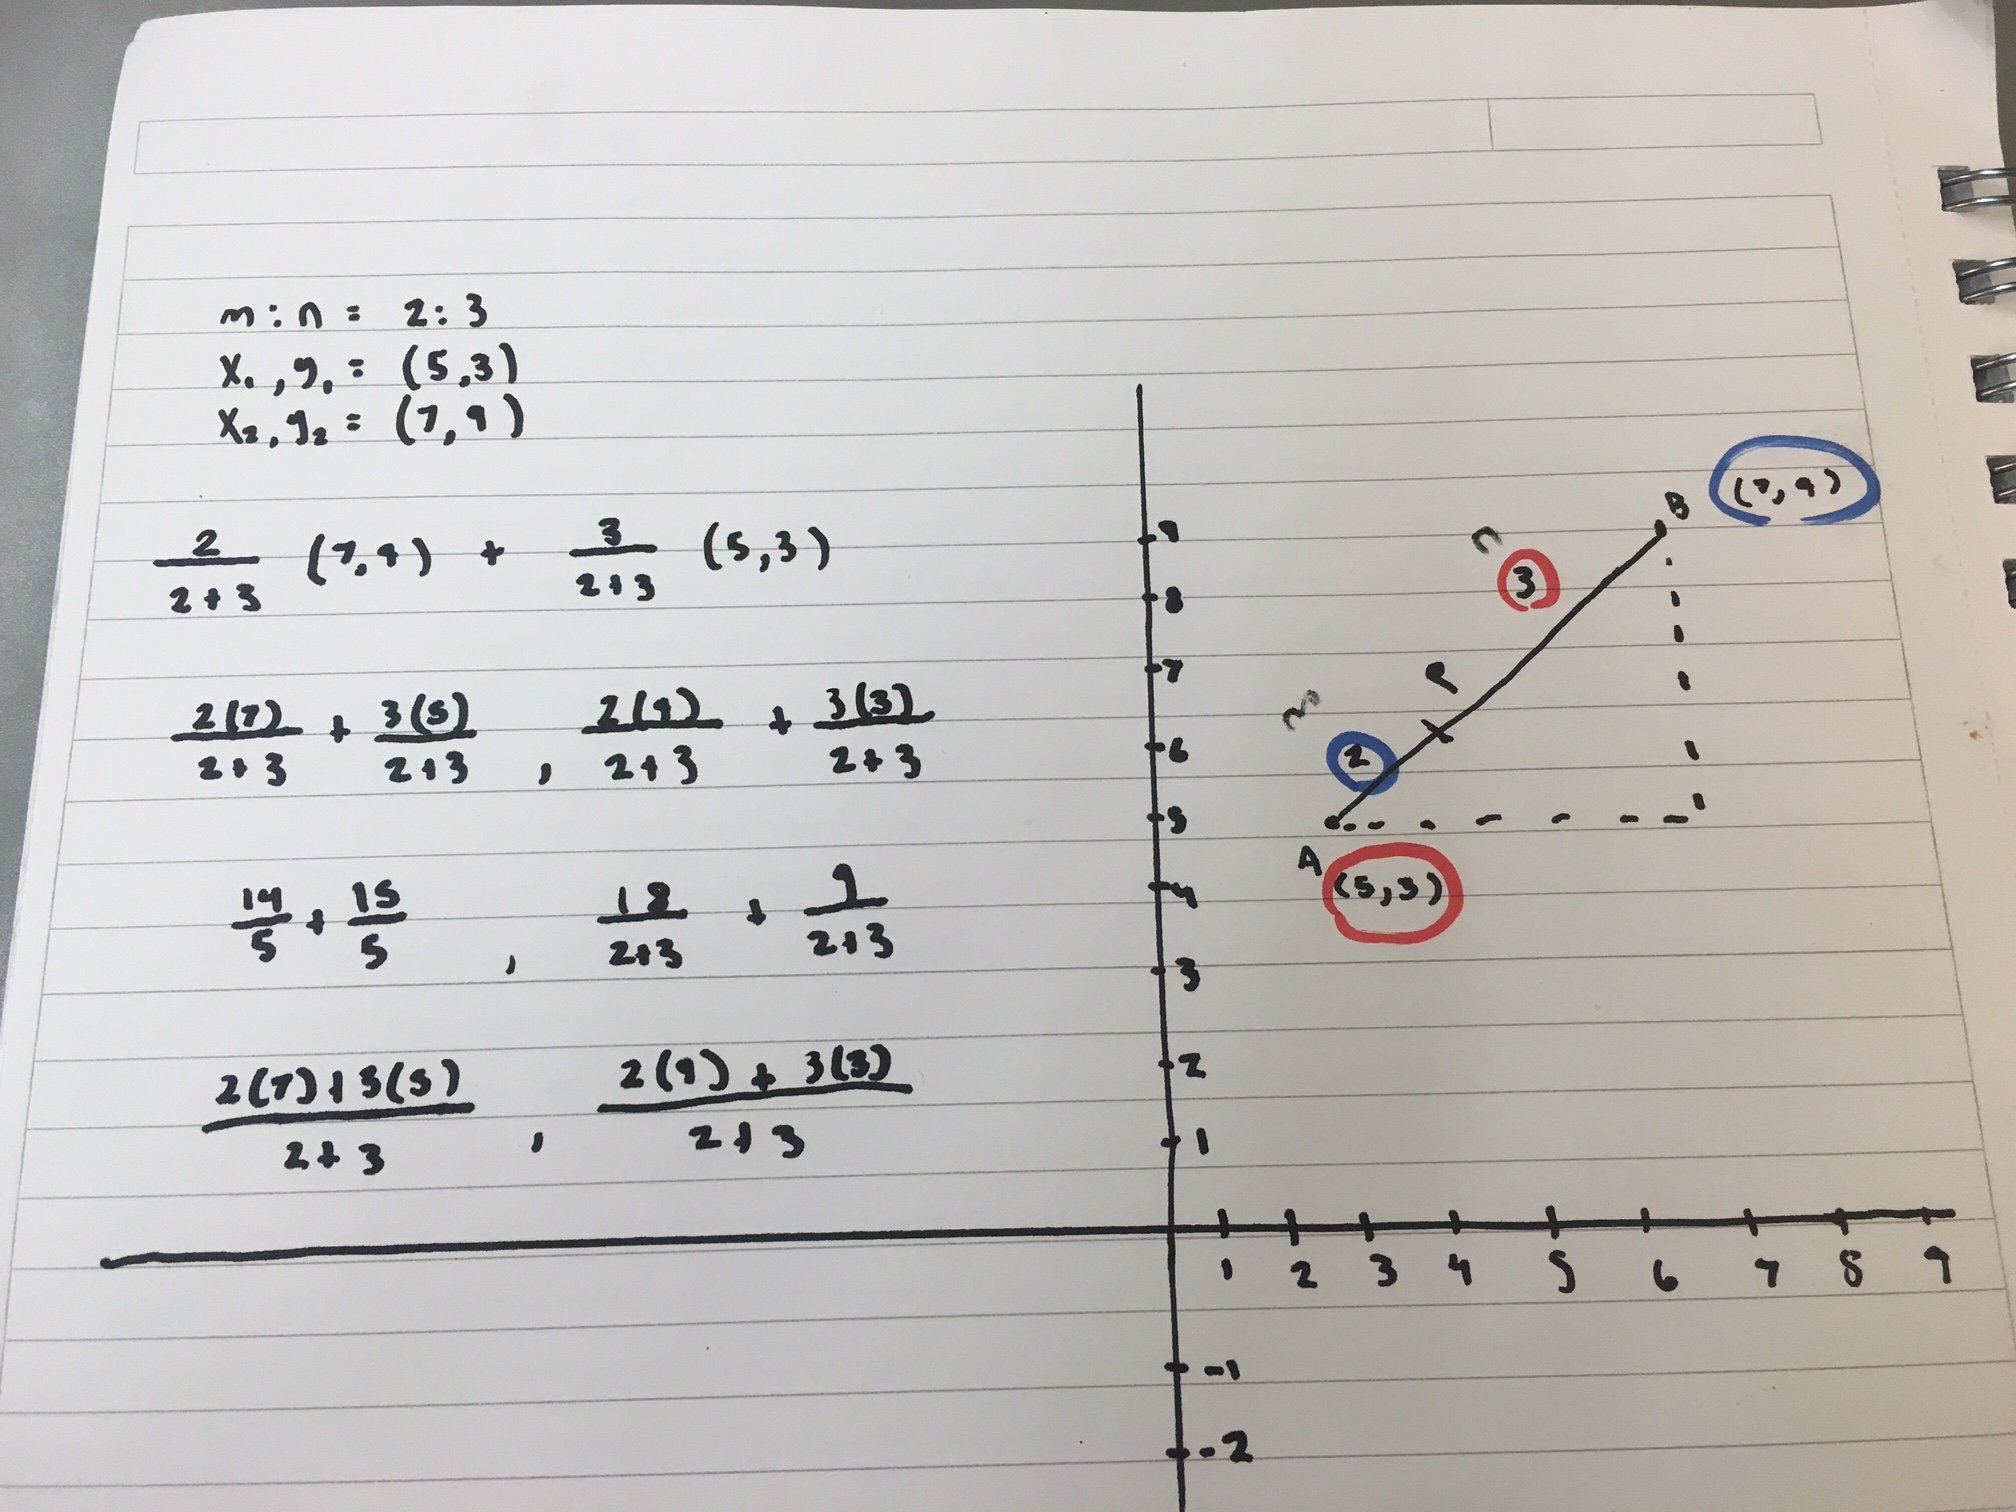 m:n = 2:3
x₁,y₁ = (5,3)
x₂,y₂ = (7,9)
2/2+3 (7,9) + 3/2+3 (5,3)
2(7)/2+3 + 3(5)/2+3 , 2(9)/2+3 + 3(3)/2+3
14/5 + 15/5 , 18/2+3 + 9/2+3
2(7)+3(5)/2+3 , 2(9)+3(3)/2+3
B (7,9)
n
3
P
m
2
A (5,3)
9
8
7
6
5
4
3
2
1
1 2 3 4 5 6 7 8 9
-1
-2